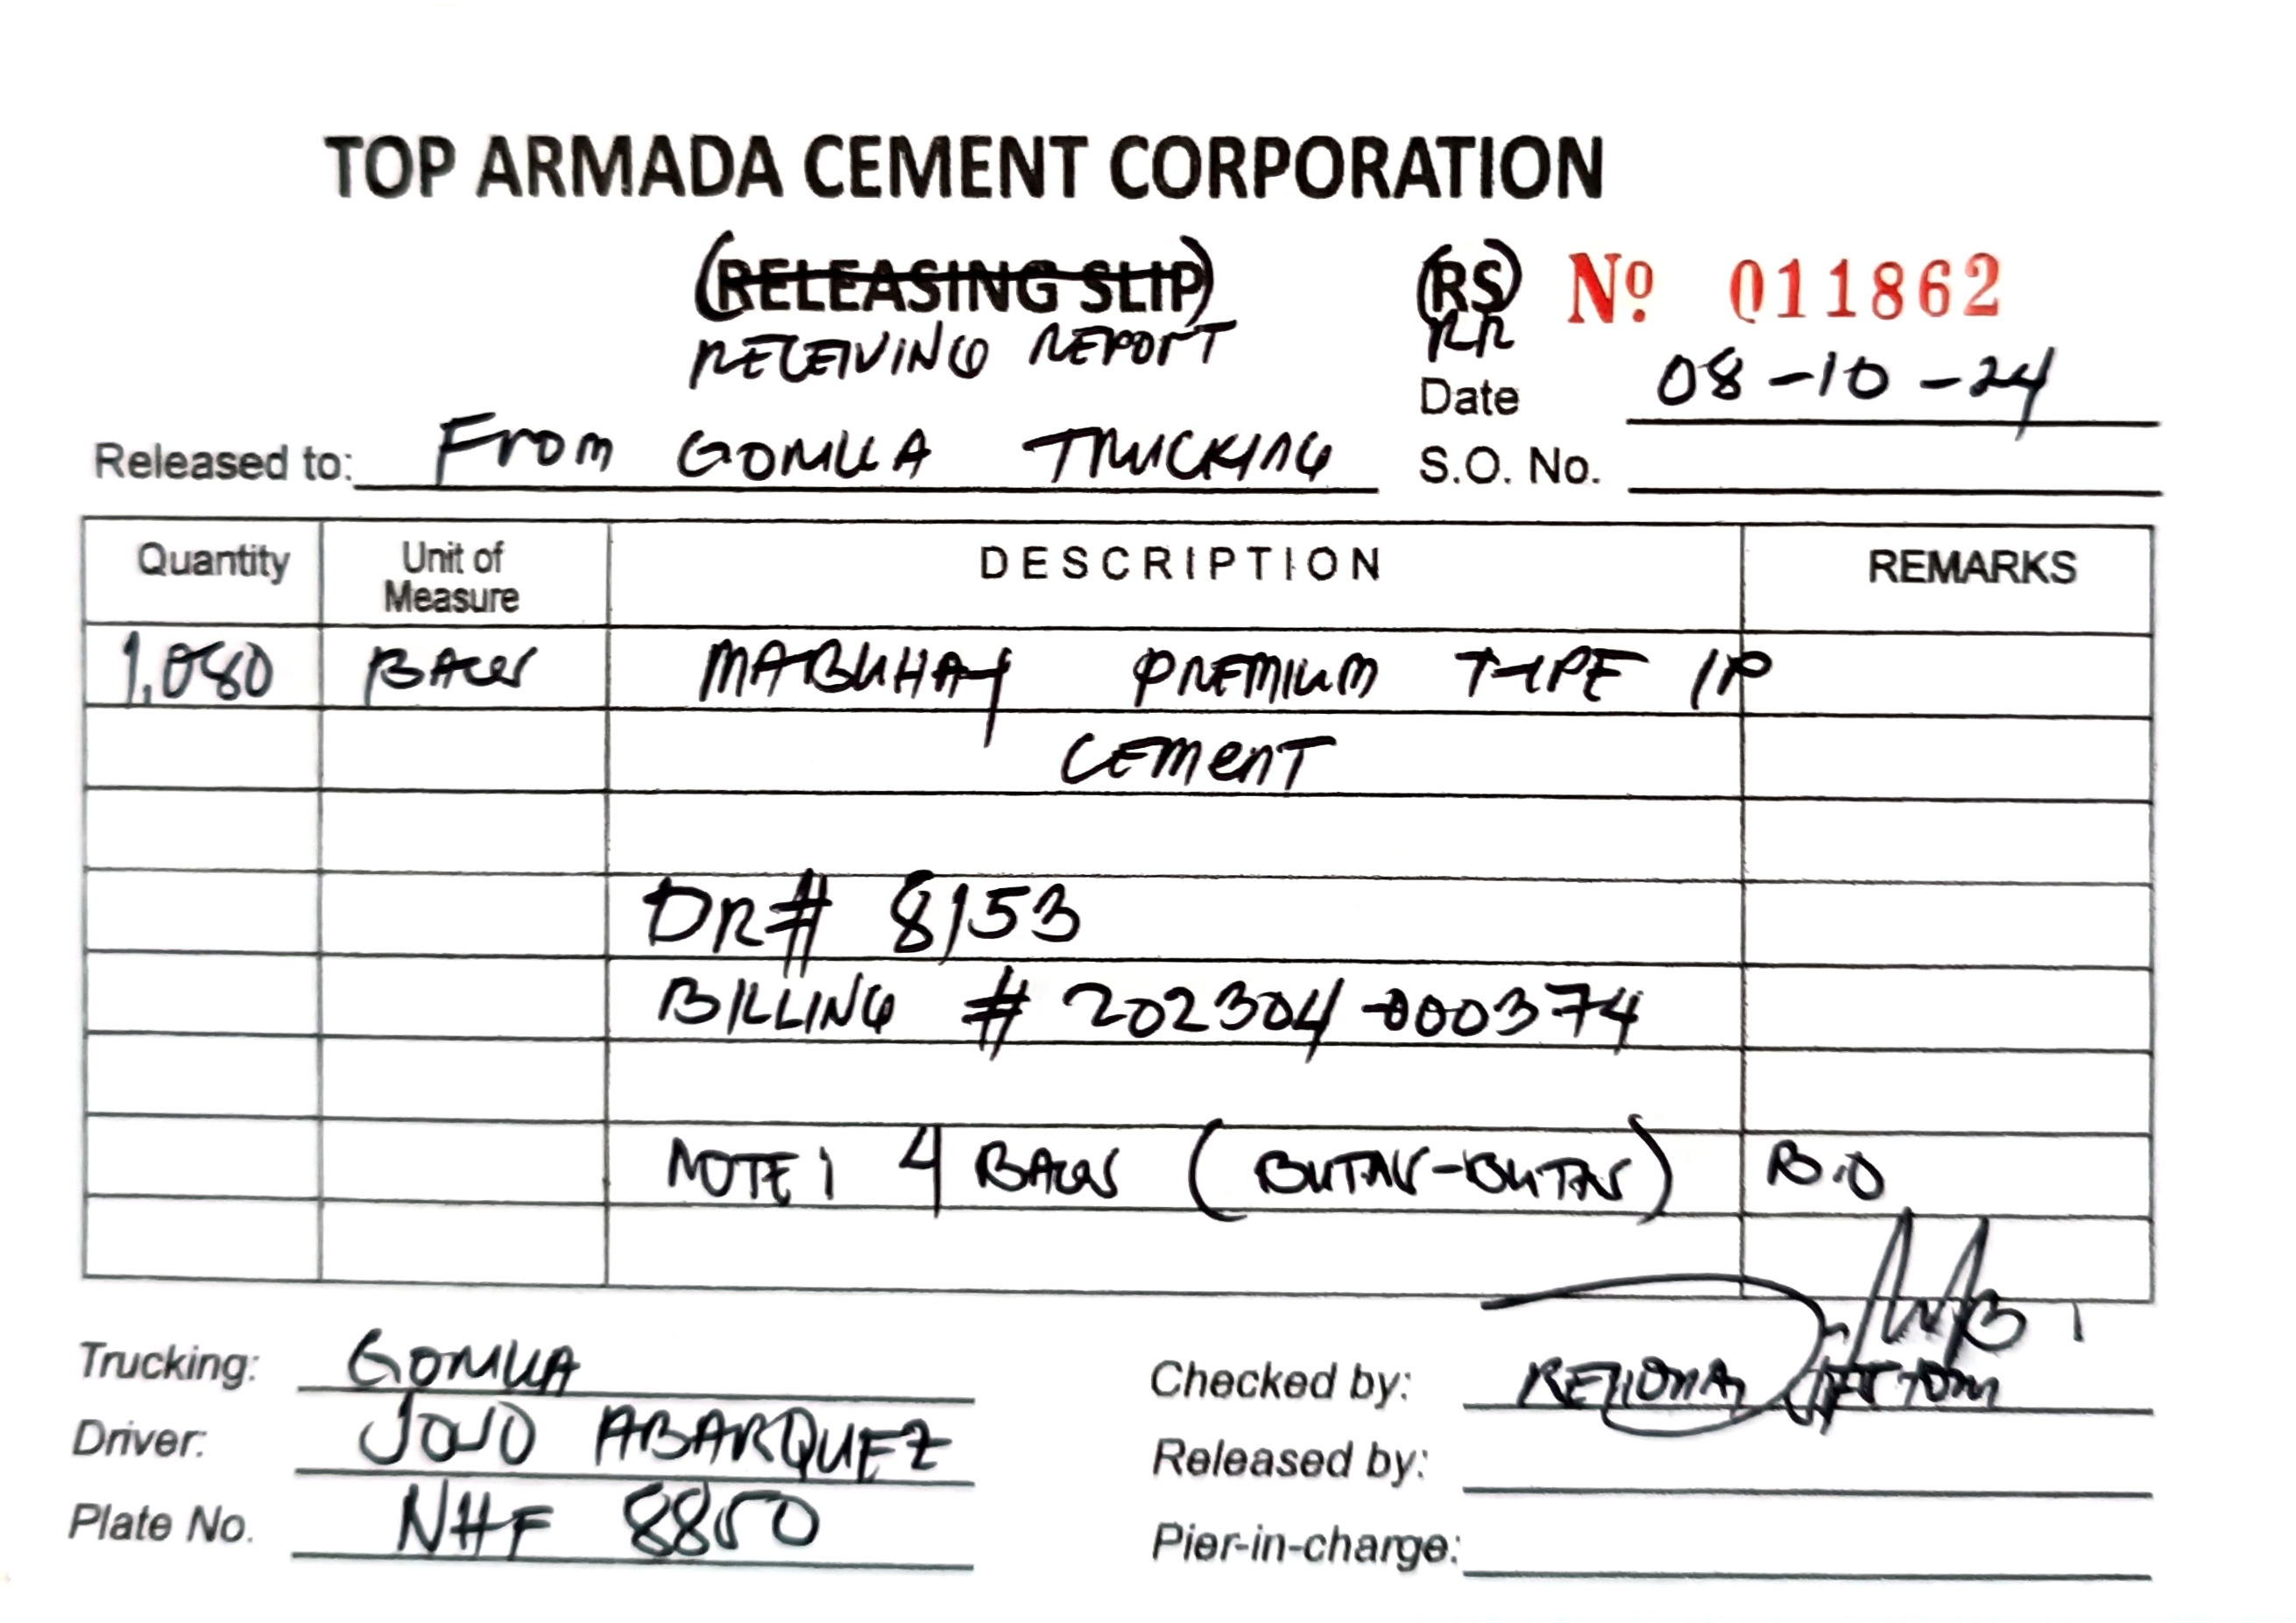 TOP ARMADA CEMENT CORPORATION
(RELEASING SLIP) (RS) Nº 011862
RECEIVING REPORT RR
Date 08-10-24
Released to: From GOMUA TRUCKING S.O. No.
Quantity Unit of Measure DESCRIPTION REMARKS
1,080 BAGS MABUHAY PREMIUM TYPE 1P
CEMENT
DR# 8153
BILLING # 202304-000374
NOTE: 4 BAGS (BUTAS-BUTAS) B.O
Trucking: GOMUA Checked by:
Driver: JOJO ABARQUEZ Released by:
Plate No. NHF 8850 Pier-in-charge: